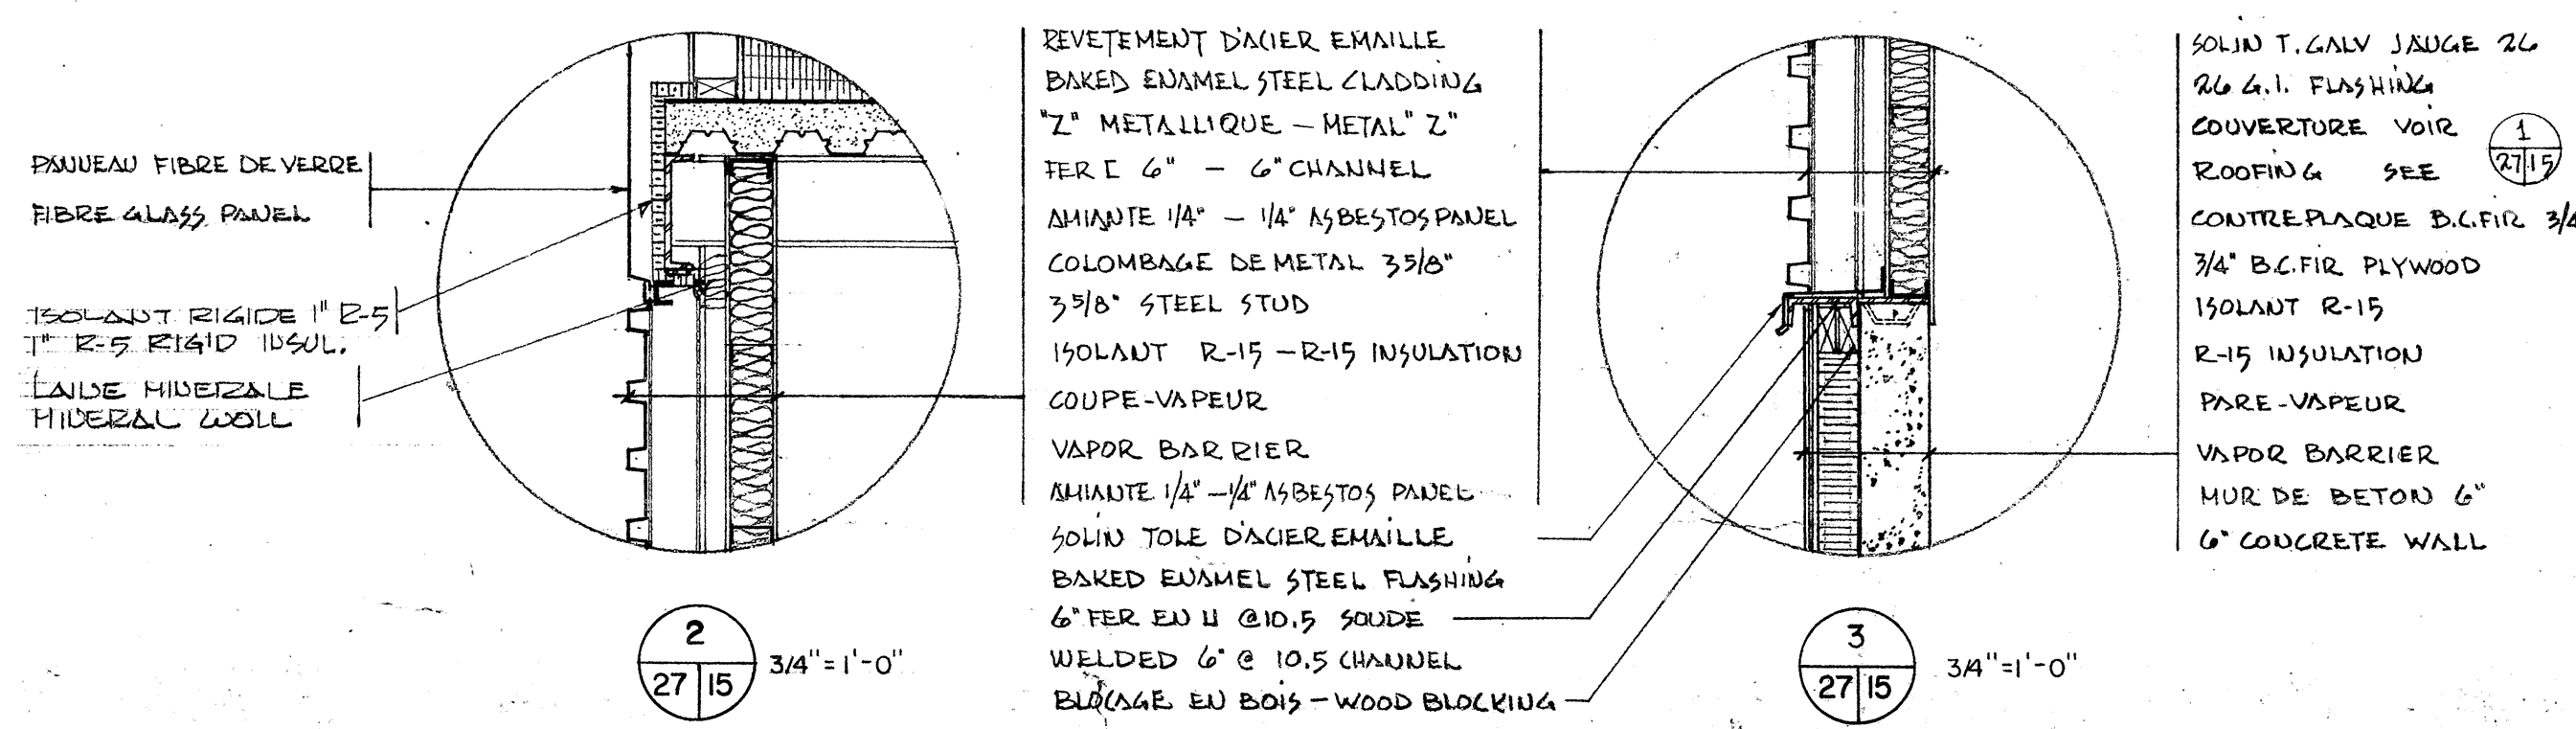 PANNEAU FIBRE DE VERRE
FIBRE GLASS PANEL
ISOLANT RIGIDE 1" R-5
1" R-5 RIGID INSUL.
LAINE MINERALE
MINERAL WOLL
REVETEMENT D'ACIER EMAILLE
BAKED ENAMEL STEEL CLADDING
"Z" METALLIQUE - METAL "Z"
FER [ 6" - 6" CHANNEL
AMIANTE 1/4" - 1/4" ASBESTOS PANEL
COLOMBAGE DE METAL 3 5/8"
3 5/8" STEEL STUD
ISOLANT R-15 - R-15 INSULATION
COUPE-VAPEUR
VAPOR BARRIER
AMIANTE 1/4" - 1/4" ASBESTOS PANEL
SOLIN TOLE D'ACIER EMAILLE
BAKED ENAMEL STEEL FLASHING
6" FER EN U @ 10.5 SOUDE
WELDED 6" @ 10.5 CHANNEL
BLOCAGE EN BOIS - WOOD BLOCKING
SOLIN T. GALV JAUGE 26
26 G.I. FLASHING
COUVERTURE VOIR
ROOFING SEE
1
27 15
CONTREPLAQUE B.C. FIR 3/4
3/4" B.C. FIR PLYWOOD
ISOLANT R-15
R-15 INSULATION
PARE-VAPEUR
VAPOR BARRIER
MUR DE BETON 6"
6" CONCRETE WALL
2
27 15
3/4"=1'-0"
3
27 15
3/4"=1'-0"